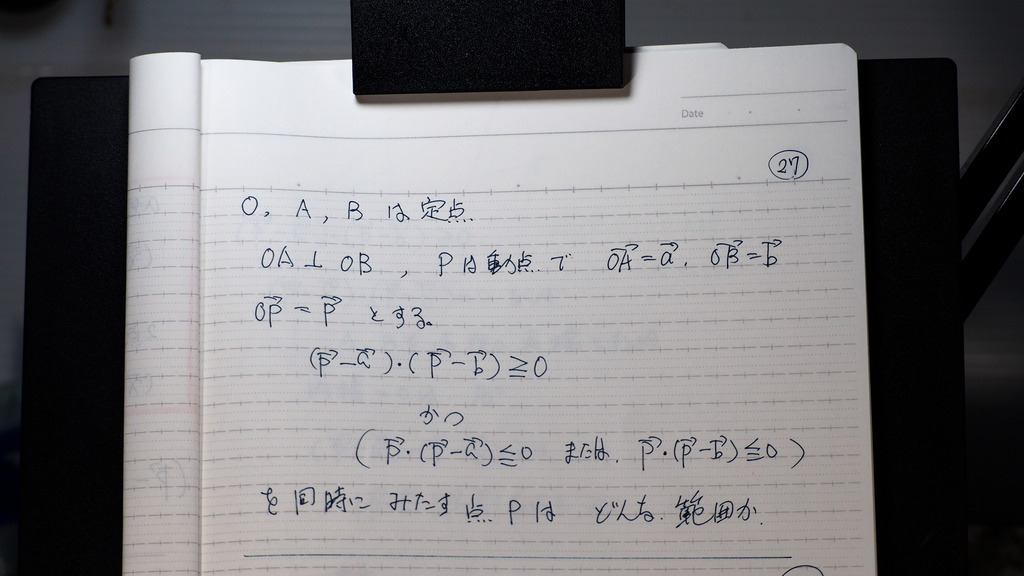 Date
27
O, A, B は定点.
OA⊥OB, Pは動点で $\vec{OA}=\vec{a}$. $\vec{OB}=\vec{b}$
$\vec{OP}=\vec{p}$ とする。
$(\vec{p}-\vec{a})\cdot(\vec{p}-\vec{b})≧0$
かつ
($\vec{p}\cdot(\vec{p}-\vec{a})≦0$ または. $\vec{p}\cdot(\vec{p}-\vec{b})≦0$)
を同時にみたす点Pはどんな.範囲か.